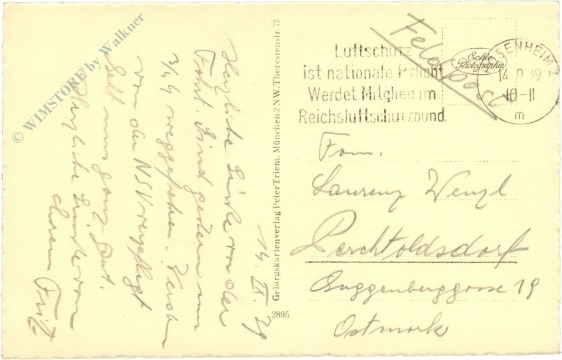 © WIMSTORE by Walkner
14. IX. 39
Herzliche Grüße von der
Front. Sind gestern um
3/4 9 weggefahren. Werden
von der NSV verpflegt
Geht uns ganz gut.
Herzliche Grüße von
eurem Fritz
Gebirgskartenverlag Peter Triem, München 2 NW, Theresienstr. 75
2895
Feldpost
Luftschutz
ist nationale Pflicht
Werdet Mitglied im
Reichsluftschutzbund
Echte
Photographie
ROSENHEIM 2
14.9.39
10-11
m
Fam.
Laurenz Wenzl
Perchtoldsdorf
Guggenberggasse 19
Ostmark